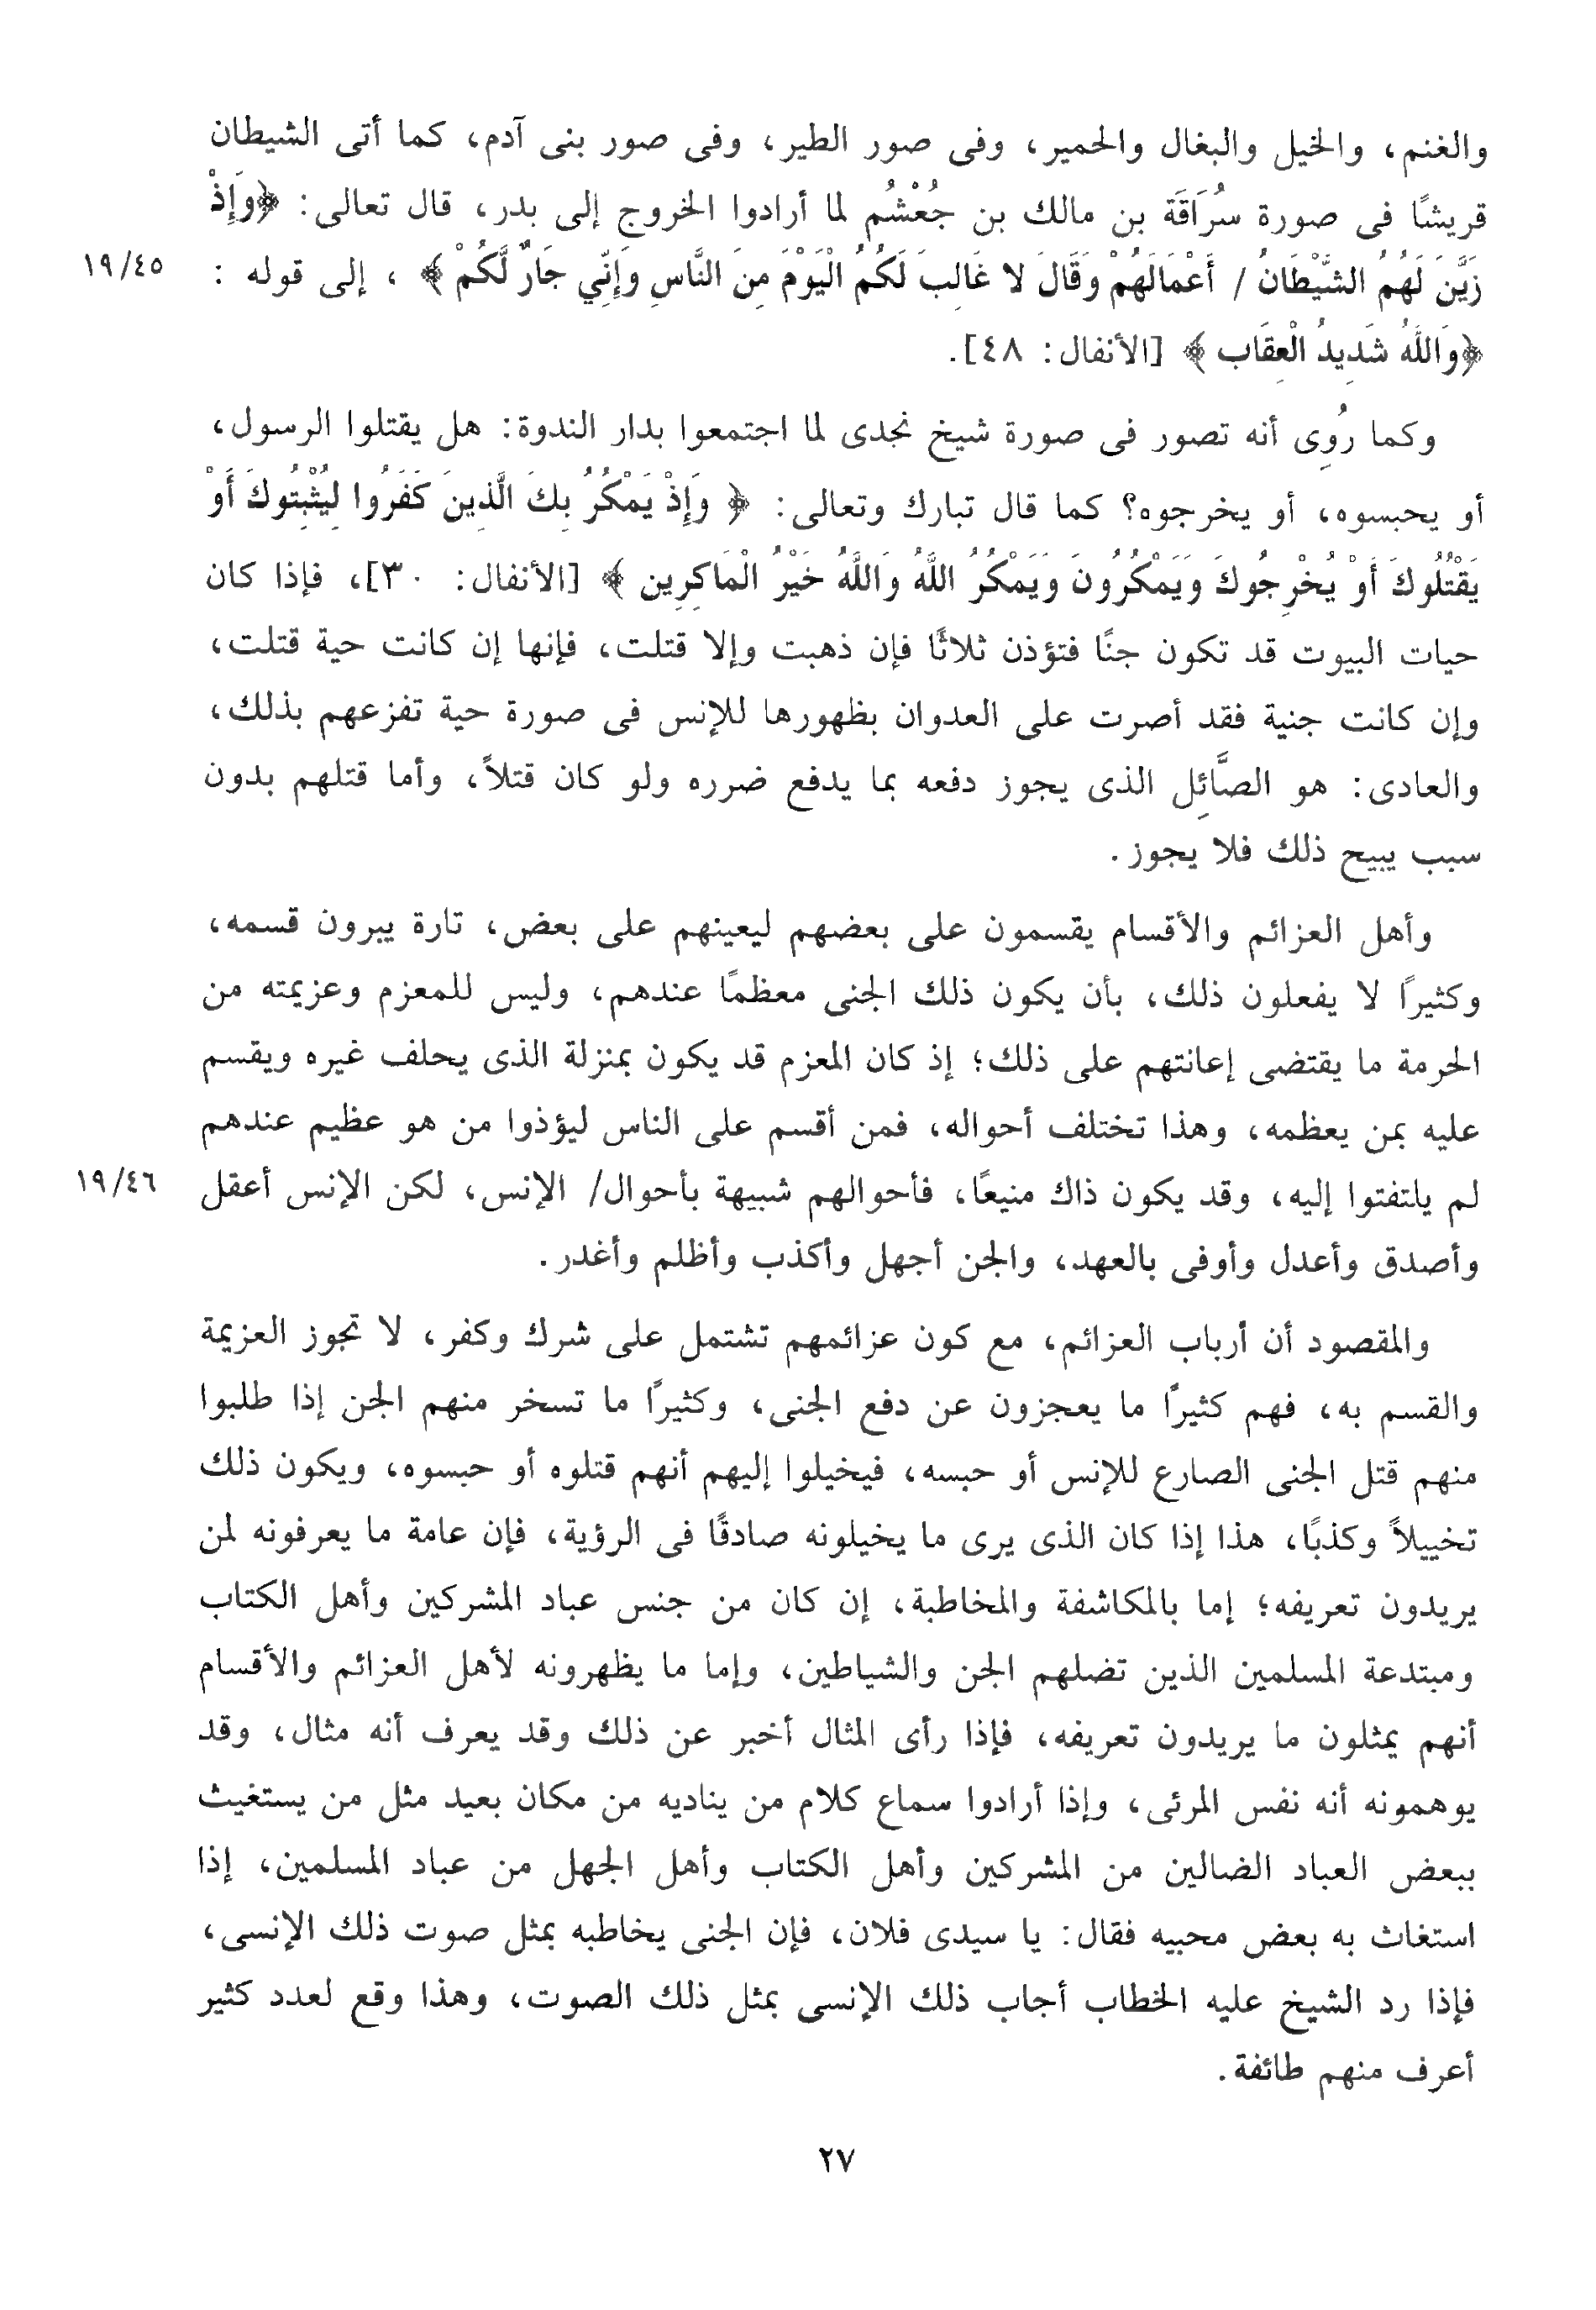 والغنم، والخيل والبغال والحمير، وفى صور الطير، وفى صور بنى آدم، كما أتى الشيطان
قريشًا فى صورة سُرَاقَة بن مالك بن جُعْشُم لما أرادوا الخروج إلى بدر، قال تعالى: ﴿وَإِذْ
زَيَّنَ لَهُمُ الشَّيْطَانُ / أَعْمَالَهُمْ وَقَالَ لا غَالِبَ لَكُمُ الْيَوْمَ مِنَ النَّاسِ وَإِنِّي جَارٌ لَّكُمْ ﴾ ، إلى قوله :
١٩/٤٥
﴿وَاللَّهُ شَدِيدُ الْعِقَاب ﴾ [الأنفال: ٤٨].
وكما رُوِى أنه تصور فى صورة شيخ نجدى لما اجتمعوا بدار الندوة: هل يقتلوا الرسول،
أو يحبسوه، أو يخرجوه؟ كما قال تبارك وتعالى: ﴿ وَإِذْ يَمْكُرُ بِكَ الَّذِينَ كَفَرُوا لِيُثْبِتُوكَ أَوْ
يَقْتُلُوكَ أَوْ يُخْرِجُوكَ وَيَمْكُرُونَ وَيَمْكُرُ اللَّهُ وَاللَّهُ خَيْرُ الْمَاكِرِين ﴾ [الأنفال: ٣٠]، فإذا كان
حيات البيوت قد تكون جنًا فتؤذن ثلاثًا فإن ذهبت وإلا قتلت، فإنها إن كانت حية قتلت،
وإن كانت جنية فقد أصرت على العدوان بظهورها للإنس فى صورة حية تفزعهم بذلك،
والعادى: هو الصَّائِل الذى يجوز دفعه بما يدفع ضرره ولو كان قتلاً، وأما قتلهم بدون
سبب يبيح ذلك فلا يجوز.
وأهل العزائم والأقسام يقسمون على بعضهم ليعينهم على بعض، تارة يبرون قسمه،
وكثيرًا لا يفعلون ذلك، بأن يكون ذلك الجنى معظمًا عندهم، وليس للمعزم وعزيمته من
الحرمة ما يقتضى إعانتهم على ذلك؛ إذ كان المعزم قد يكون بمنزلة الذى يحلف غيره ويقسم
عليه بمن يعظمه، وهذا تختلف أحواله، فمن أقسم على الناس ليؤذوا من هو عظيم عندهم
لم يلتفتوا إليه، وقد يكون ذاك منيعًا، فأحوالهم شبيهة بأحوال/ الإنس، لكن الإنس أعقل
١٩/٤٦
وأصدق وأعدل وأوفى بالعهد، والجن أجهل وأكذب وأظلم وأغدر.
والمقصود أن أرباب العزائم، مع كون عزائمهم تشتمل على شرك وكفر، لا تجوز العزيمة
والقسم به، فهم كثيرًا ما يعجزون عن دفع الجنى، وكثيرًا ما تسخر منهم الجن إذا طلبوا
منهم قتل الجنى الصارع للإنس أو حبسه، فيخيلوا إليهم أنهم قتلوه أو حبسوه، ويكون ذلك
تخييلاً وكذبًا، هذا إذا كان الذى يرى ما يخيلونه صادقًا فى الرؤية، فإن عامة ما يعرفونه لمن
يريدون تعريفه؛ إما بالمكاشفة والمخاطبة، إن كان من جنس عباد المشركين وأهل الكتاب
ومبتدعة المسلمين الذين تضلهم الجن والشياطين، وإما ما يظهرونه لأهل العزائم والأقسام
أنهم يمثلون ما يريدون تعريفه، فإذا رأى المثال أخبر عن ذلك وقد يعرف أنه مثال، وقد
يوهمونه أنه نفس المرئى، وإذا أرادوا سماع كلام من يناديه من مكان بعيد مثل من يستغيث
ببعض العباد الضالين من المشركين وأهل الكتاب وأهل الجهل من عباد المسلمين، إذا
استغاث به بعض محبيه فقال: يا سيدى فلان، فإن الجنى يخاطبه بمثل صوت ذلك الإنسى،
فإذا رد الشيخ عليه الخطاب أجاب ذلك الإنسى بمثل ذلك الصوت، وهذا وقع لعدد كثير
أعرف منهم طائفة.
٢٧